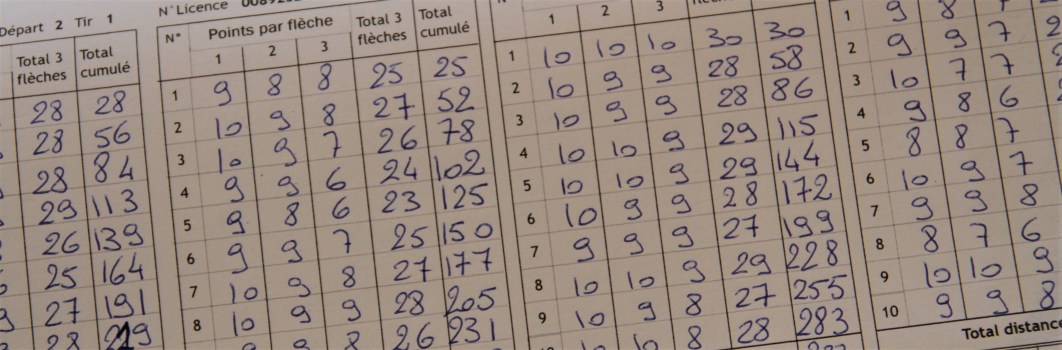 Départ 2 Tir 1
Total 3 flèches Total cumulé
28 28
28 56
28 84
29 113
26 139
25 164
27 191
28 219
N° Licence
N° Points par flèche Total 3 flèches Total cumulé
1 2 3
1 9 8 8 25 25
2 10 9 8 27 52
3 10 9 7 26 78
4 9 9 6 24 102
5 9 8 6 23 125
6 9 9 7 25 150
7 10 9 8 27 177
8 10 9 9 28 205
9 9 8 26 231
1 2 3
1 10 10 10 30 30
2 10 9 9 28 58
3 10 9 9 28 86
4 10 10 9 29 115
5 10 10 9 29 144
6 10 9 9 28 172
7 9 9 9 27 199
8 10 10 9 29 228
9 10 9 8 27 255
10 10 8 28 283
1 9 8
2 9 9 7
3 10 7 7
4 9 8 6
5 8 8 7
6 10 9 7
7 9 9 8
8 8 7 6
9 10 10 9
10 9 9 8
Total distance